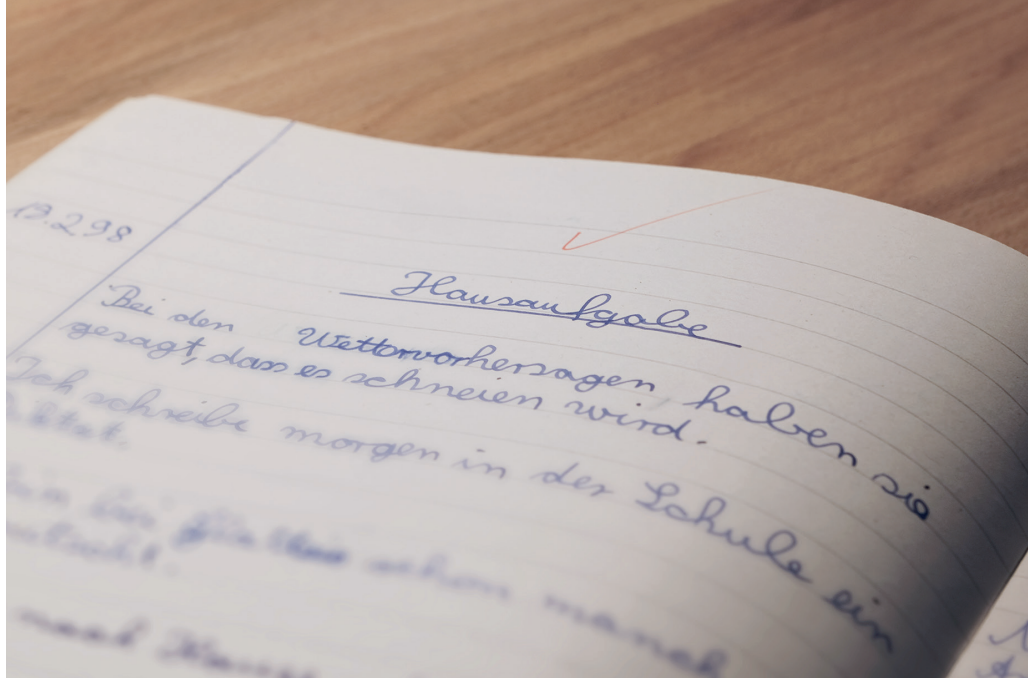 13.2.98
Hausaufgabe
Bei den Wettervorhersagen haben sie
gesagt, dass es schneien wird.
Ich schreibe morgen in der Schule ein
Diktat.
schon manch
nach Hause